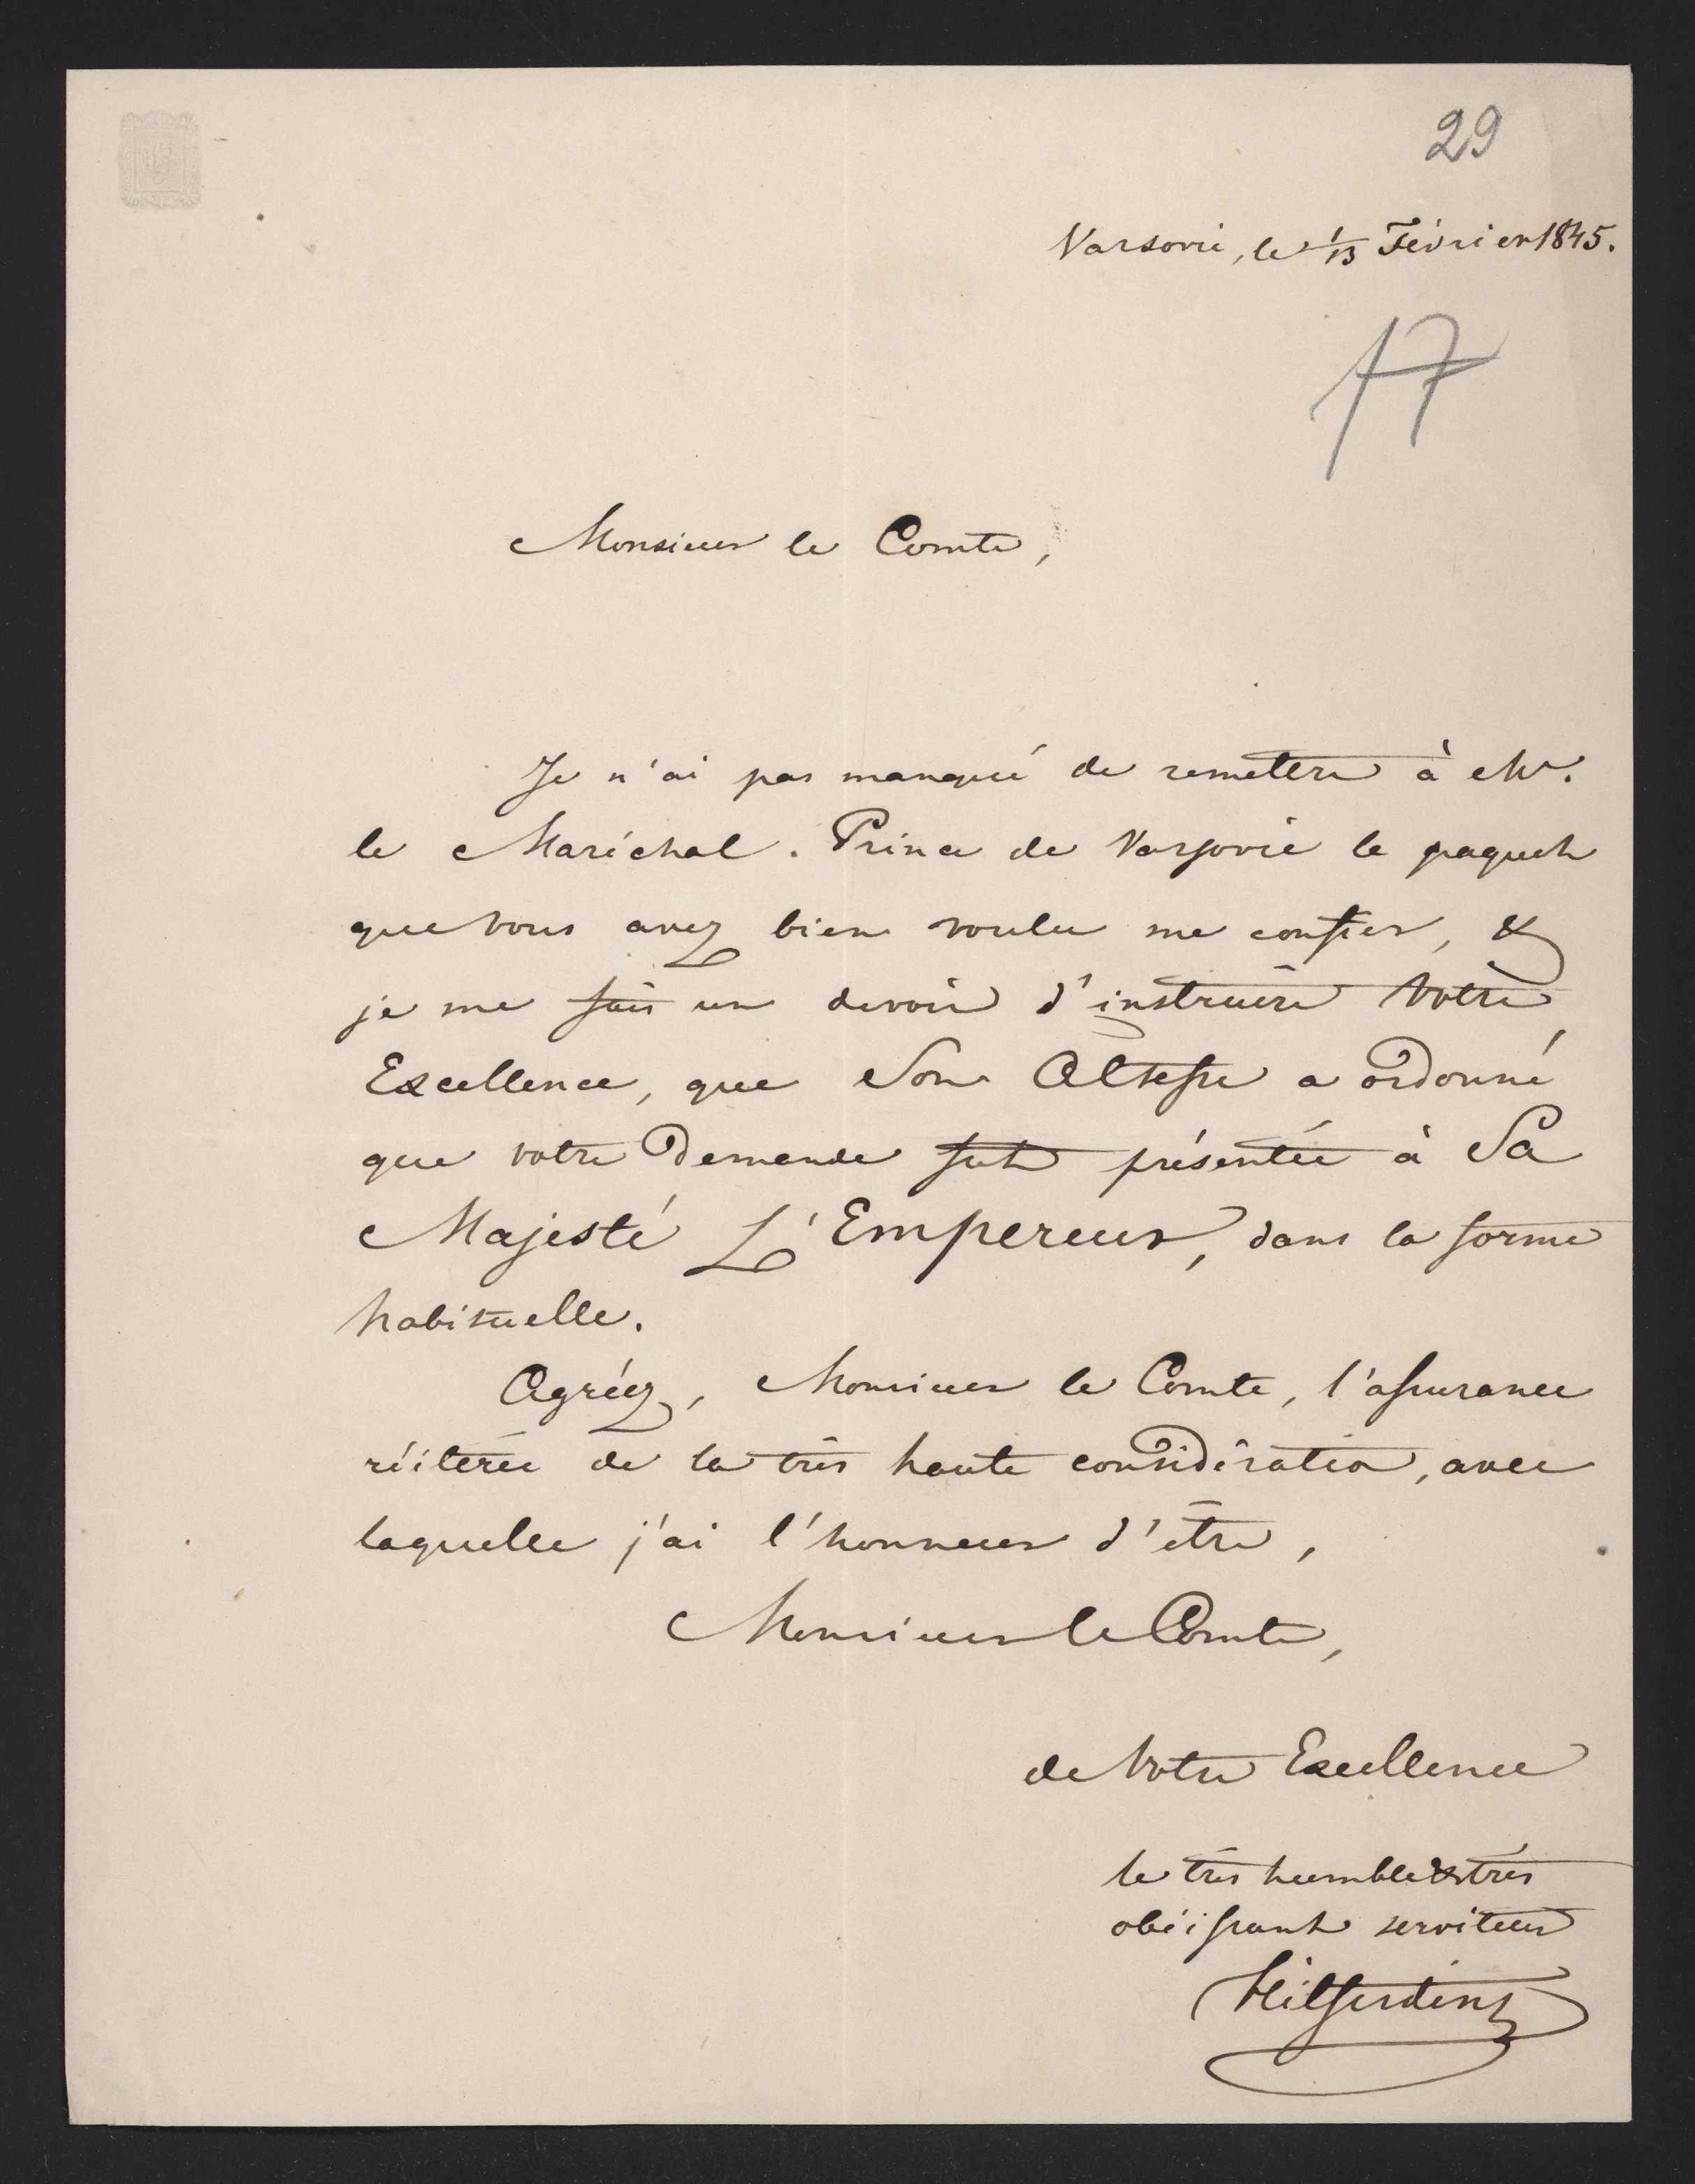 29
Varsovie, le 1/13 Février 1845.
17
Monsieur le Comte,
Je n'ai pas manqué de remettre à Mr.
le Maréchal. Prince de Varsovie le paquet
que vous avez bien voulu me confier, &
je me fais un devoir d'instruire Votre
Excellence, que Son Altesse a ordonné
que votre Demande fut présentée à Sa
Majesté L'Empereur, dans la forme
habituelle.
Agréez, Monsieur le Comte, l'assurance
réiterée de la très haute considération, avec
laquelle j'ai l'honneur d'être,
Monsieur le Comte,
de Votre Excellence
le très humble & très
obéissant serviteur
Hilferding